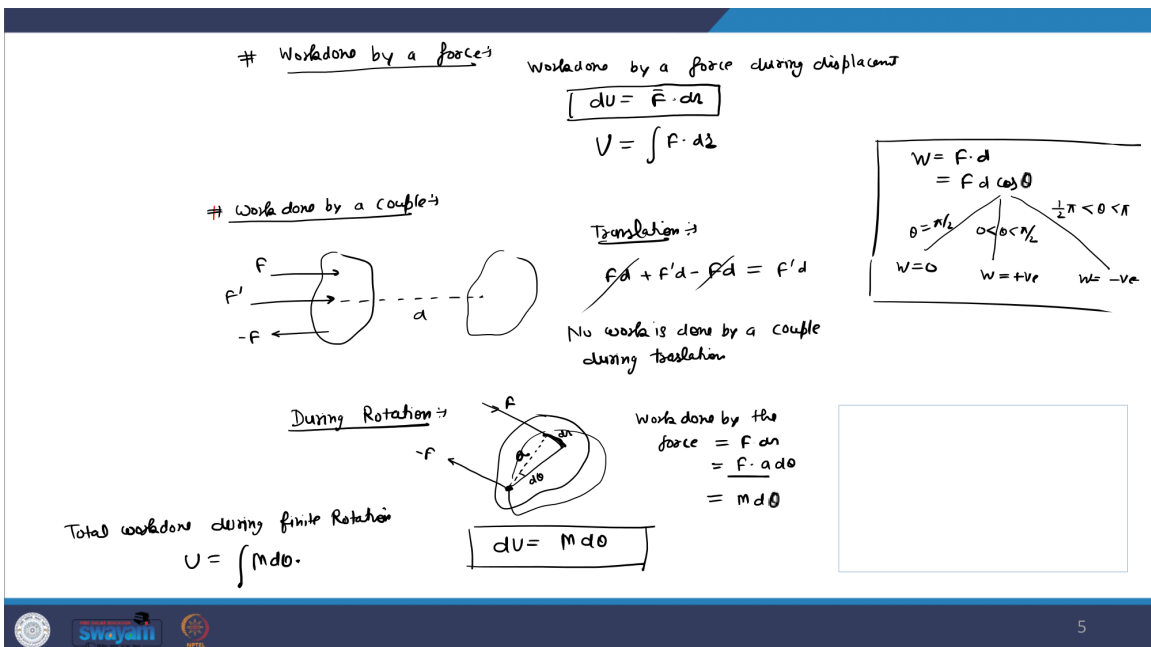 # Workdone by a force:
Workdone by a force during displacemt
dU = F̄ · dr
U = ∫ F · dr
W = F·d
= F d cosθ
θ = π/2
0<θ<π/2
½π < θ < π
W=0
W = +ve
W= -ve
# Work done by a couple:
F
F'
-F
d
Translation:
Fd + F'd - Fd = F'd
No work is done by a couple
during traslation
During Rotation:
F
-F
a
dr
dθ
Work done by the
force = F dr
= F · a dθ
= M dθ
Total workdone during finite Rotation
U = ∫ M dθ.
dU = M dθ
swayam
5